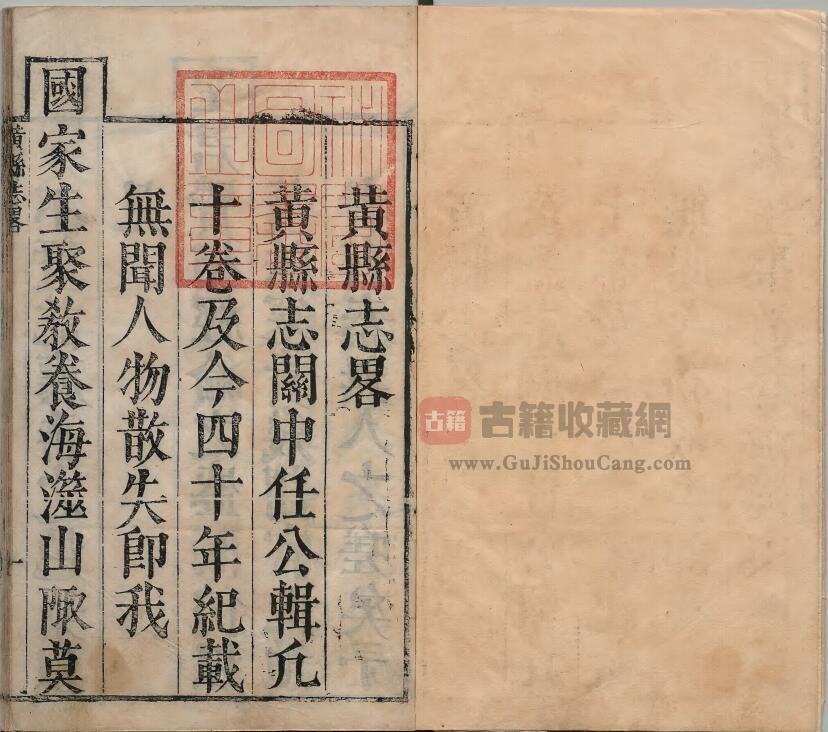 黃縣志畧
黃縣志關中任公輯凢
十卷及今四十年紀載
無聞人物散失卽我
國家生聚敎養海澨山陬莫
黃縣志畧
一
古籍 古籍收藏網
www.GuJiShouCang.com